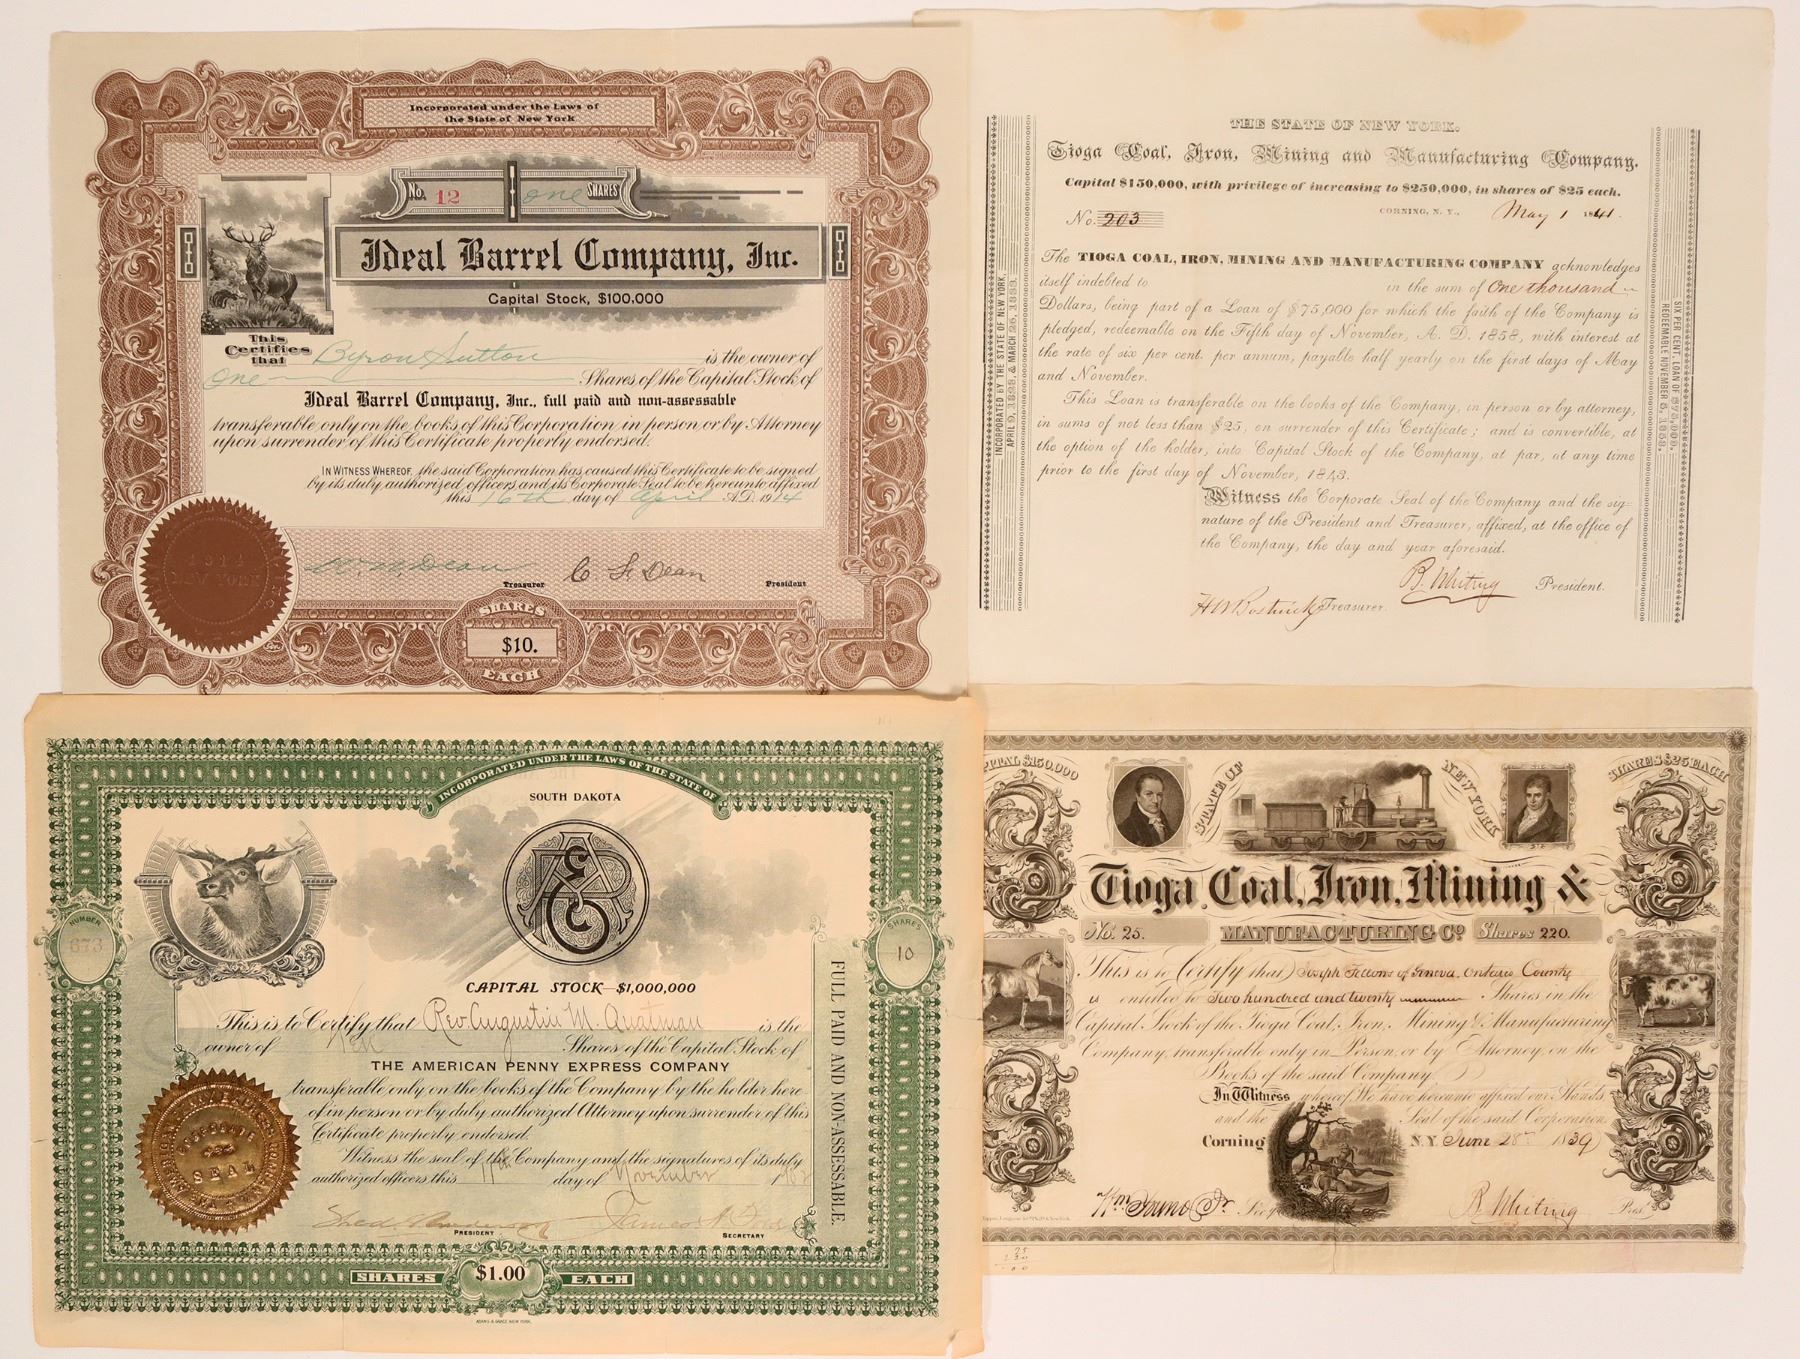 Incorporated under the Laws of
the State of New York
No. 12 one SHARES
Ideal Barrel Company, Inc.
Capital Stock, $100,000
This
Certifies
that Byron Sutton is the owner of
one Shares of the Capital Stock of
Ideal Barrel Company, Inc., full paid and non-assessable
transferable only on the books of this Corporation in person or by Attorney
upon surrender of this Certificate properly endorsed.
IN WITNESS WHEREOF, the said Corporation has caused this Certificate to be signed
by its duly authorized officers and its Corporate Seal to be hereunto affixed
this 16th day of April A.D. 1914
1914
NEW YORK
W. N. Dean Treasurer C F Dean President
SHARES
$10.
EACH
THE STATE OF NEW YORK.
Tioga Coal, Iron, Mining and Manufacturing Company.
Capital $150,000, with privilege of increasing to $250,000, in shares of $25 each.
No. 203
CORNING, N. Y., May 1 1841.
The TIOGA COAL, IRON, MINING AND MANUFACTURING COMPANY acknowledges
itself indebted to in the sum of One thousand
Dollars, being part of a Loan of $75,000 for which the faith of the Company is
pledged, redeemable on the Fifth day of November, A. D. 1858, with interest at
the rate of six per cent. per annum, payable half yearly on the first days of May
and November.
This Loan is transferable on the books of the Company, in person or by attorney,
in sums of not less than $25, on surrender of this Certificate; and is convertible, at
the option of the holder, into Capital Stock of the Company, at par, at any time
prior to the first day of November, 1843.
Witness the Corporate Seal of the Company and the sig-
nature of the President and Treasurer, affixed, at the office of
the Company, the day and year aforesaid.
R. Whiting President.
H W Bostwick Treasurer.
INCORPORATED BY THE STATE OF NEW YORK,
APRIL 9, 1828, & MARCH 26, 1833.
SIX PER CENT. LOAN OF $75,000.
REDEEMABLE NOVEMBER 5, 1858.
INCORPORATED UNDER THE LAWS OF THE STATE OF
SOUTH DAKOTA
NUMBER
673
SHARES
10
CAPITAL STOCK—$1,000,000
This is to Certify that Rev Augustin M. Quatman is the
owner of Ten Shares of the Capital Stock of
THE AMERICAN PENNY EXPRESS COMPANY
transferable only on the books of the Company by the holder here
of in person or by duly authorized Attorney upon surrender of this
Certificate properly endorsed.
Witness the seal of the Company and the signatures of its duly
authorized officers this day of November
PRESIDENT
SECRETARY
SEAL
FULL PAID AND NON-ASSESSABLE.
SHARES $1.00 EACH
CAPITAL $150,000
STATE OF NEW YORK
SHARES $25 EACH
Tioga Coal, Iron, Mining &
No. 25. MANUFACTURING CO. Shares 220.
This is to Certify that Joseph Fellows of Geneva, Ontario County
is entitled to Two hundred and twenty Shares in the
Capital Stock of the Tioga Coal, Iron, Mining & Manufacturing
Company, transferable only in Person, or by Attorney, on the
Books of the said Company.
In Witness whereof We have hereunto affixed our Hands
and the Seal of the said Corporation
Corning N.Y. June 28th 1839
R. Whiting Pres.